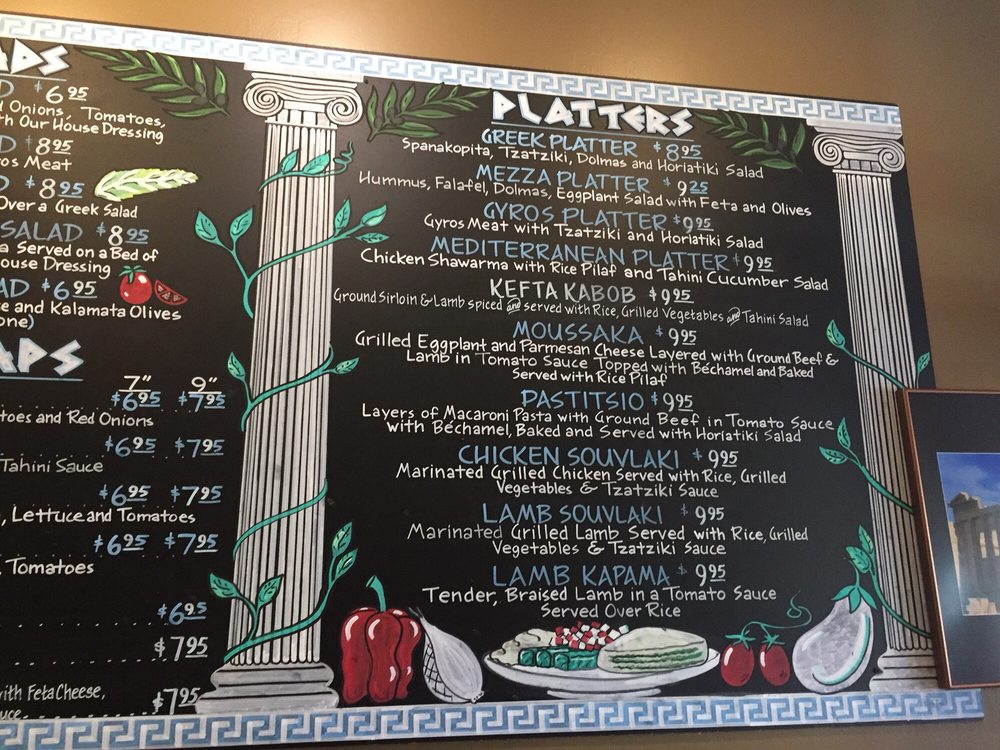 ADS
D $6.95
d Onions, Tomatoes,
th Our House Dressing
D $8.95
ros Meat
D $8.95
Over a Greek Salad
SALAD $8.95
a Served on a Bed of
ouse Dressing
AD $6.95
e and Kalamata Olives
one)
APS
7" 9"
$6.95 $7.95
toes and Red Onions
$6.95 $7.95
Tahini Sauce
$6.95 $7.95
, Lettuce and Tomatoes
$6.95 $7.95
, Tomatoes
$6.95
$7.95
with Feta Cheese,
uce $7.95
PLATTERS
GREEK PLATTER $8.95
Spanakopita, Tzatziki, Dolmas and Horiatiki Salad
MEZZA PLATTER $9.25
Hummus, Falafel, Dolmas, Eggplant Salad with Feta and Olives
GYROS PLATTER $9.95
Gyros Meat with Tzatziki and Horiatiki Salad
MEDITERRANEAN PLATTER $9.95
Chicken Shawarma with Rice Pilaf and Tahini Cucumber Salad
KEFTA KABOB $9.95
Ground Sirloin & Lamb spiced and served with Rice, Grilled Vegetables and Tahini Salad
MOUSSAKA $9.95
Grilled Eggplant and Parmesan Cheese Layered with Ground Beef &
Lamb in Tomato Sauce Topped with Béchamel and Baked
Served with Rice Pilaf
PASTITSIO $9.95
Layers of Macaroni Pasta with Ground Beef in Tomato Sauce
with Béchamel, Baked and Served with Horiatiki Salad
CHICKEN SOUVLAKI $9.95
Marinated Grilled Chicken Served with Rice, Grilled
Vegetables & Tzatziki Sauce
LAMB SOUVLAKI $9.95
Marinated Grilled Lamb Served with Rice, Grilled
Vegetables & Tzatziki Sauce
LAMB KAPAMA $9.95
Tender, Braised Lamb in a Tomato Sauce
Served Over Rice